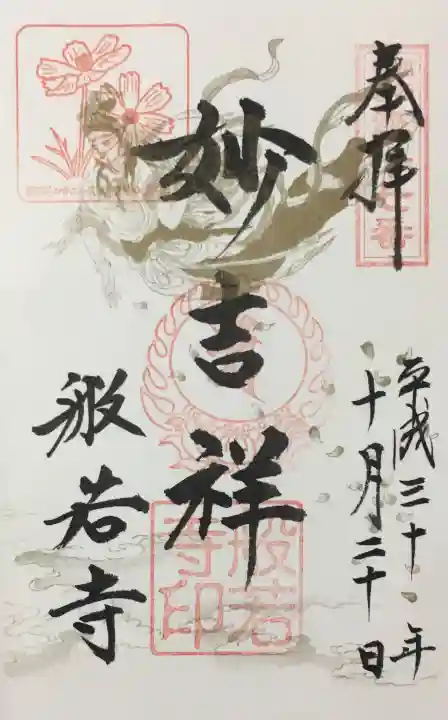 奉拝
平成三十年
十月二十日
妙吉祥
般若寺
般若寺印